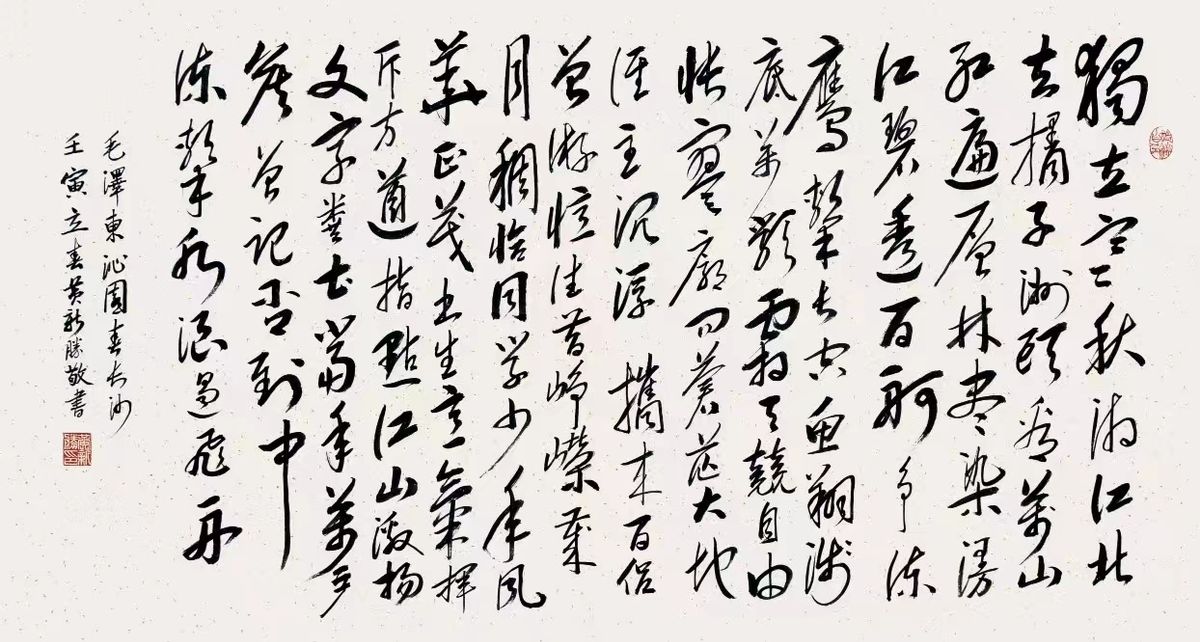 獨立寒秋湘江北
去橘子洲頭看萬山
紅遍層林盡染漫
江碧透百舸爭流
鷹擊長空魚翔淺
底萬類霜天競自由
悵寥廓問蒼茫大地
誰主沉浮 攜來百侶
曾游憶往昔崢嶸歲
月稠恰同學少年風
華正茂書生意氣揮
斥方遒指點江山激揚
文字糞土當年萬戶
侯曾記否到中
流擊水浪遏飛舟
毛澤東沁園春長沙
壬寅立春黃新勝敬書
黃新勝印